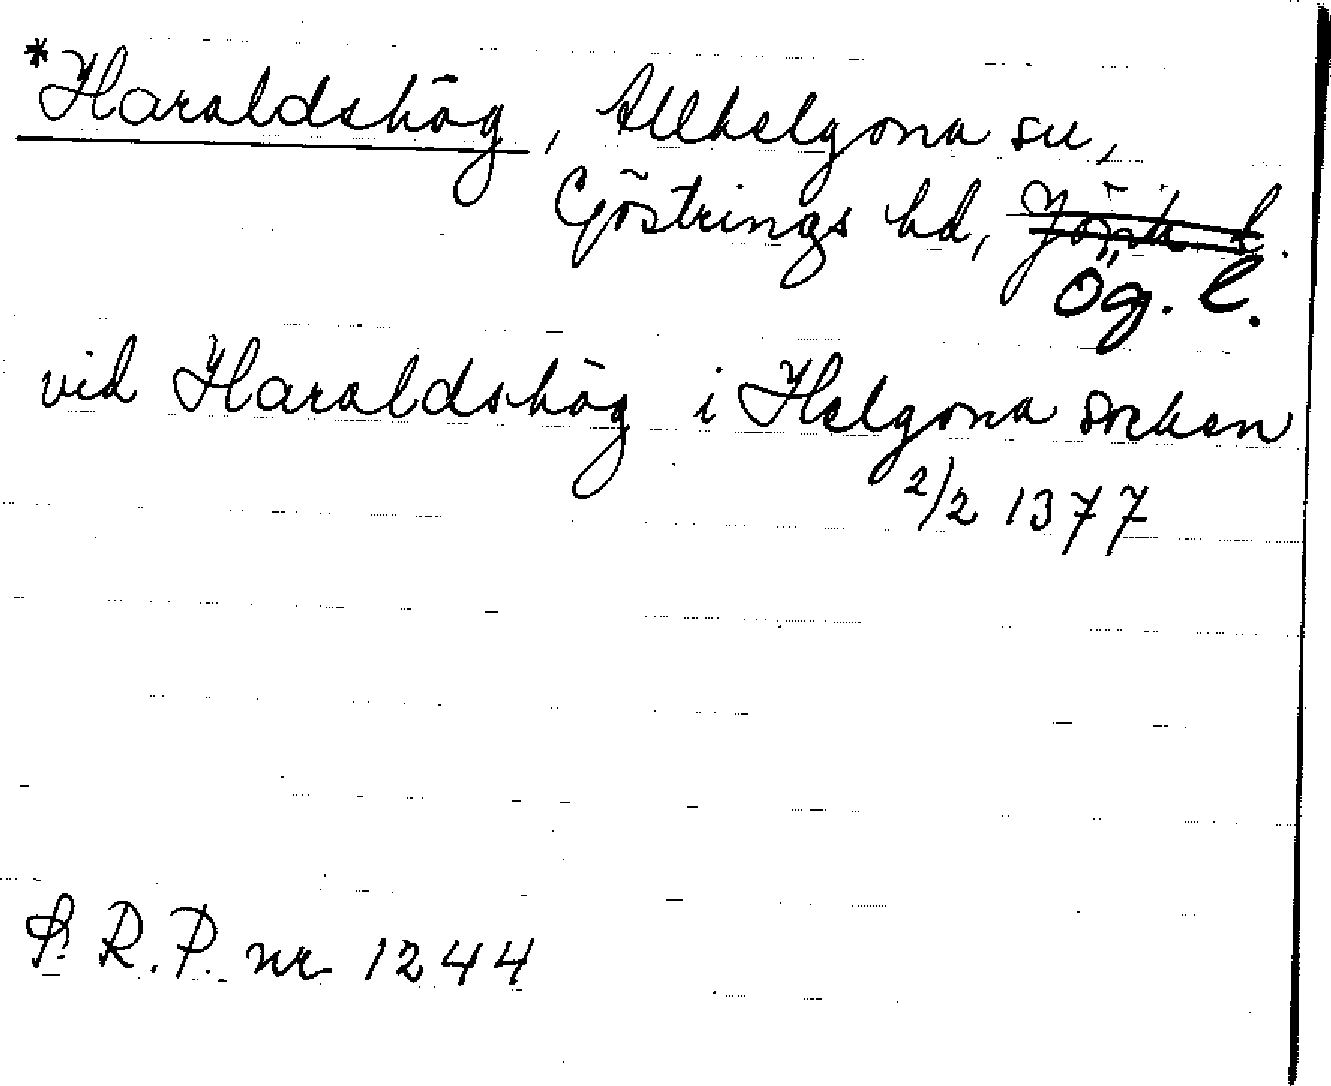 *Haraldshög, Allhelgona sn,
Göstrings hd,
Ög. l.
vid Haraldshög i Helgona socken
2/2 1377
S.R.P. nr 1244